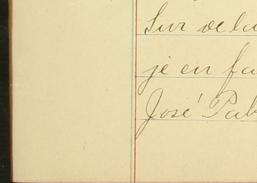 Sur de la
je en fa
José Pab